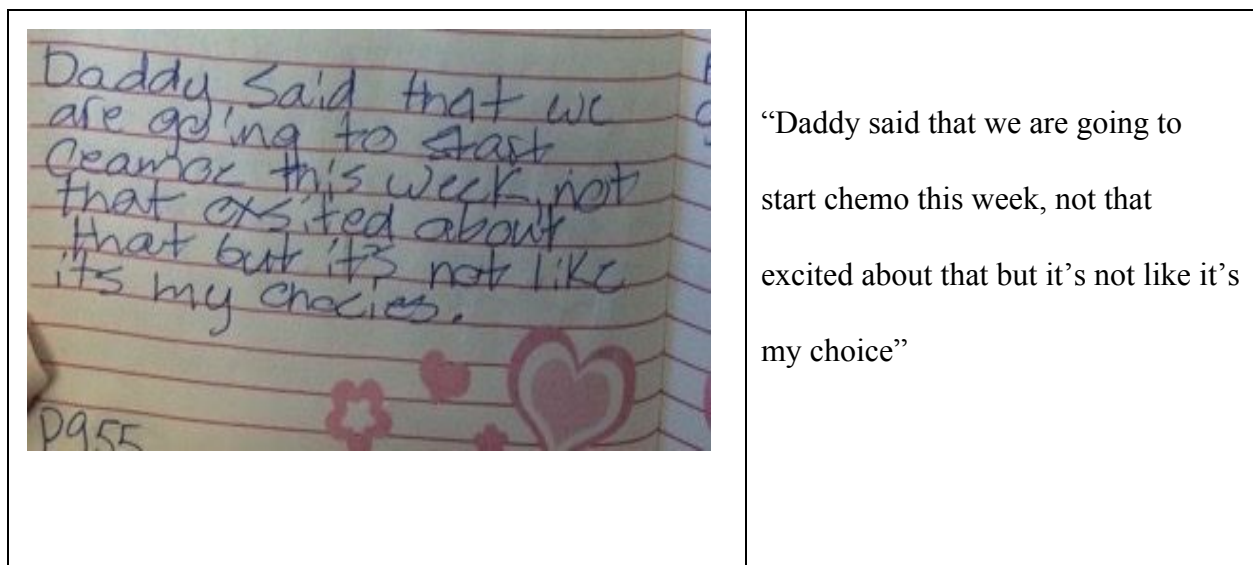 Daddy Said that we
are going to start
Ceamoe this week, not
that exsited about
that but it's not like
it's my chocies.
pg55
“Daddy said that we are going to
start chemo this week, not that
excited about that but it’s not like it’s
my choice”